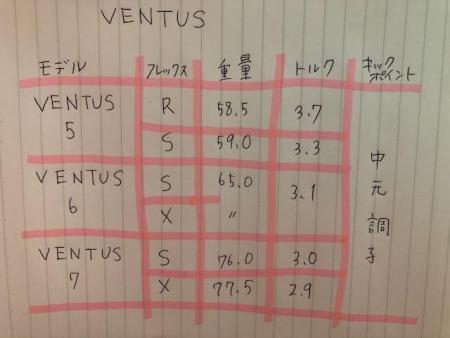 VENTUS
モデル フレックス 重量 トルク キックポイント
VENTUS 5 R 58.5 3.7 中元調子
S 59.0 3.3
VENTUS 6 S 65.0 3.1
X 〃
VENTUS 7 S 76.0 3.0
X 77.5 2.9